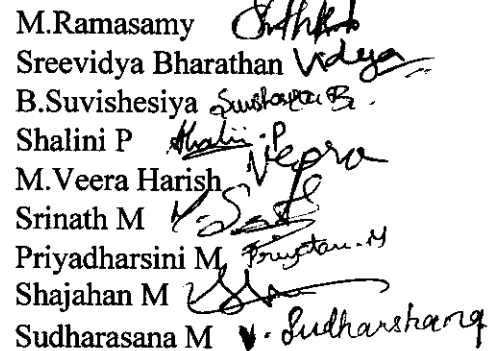 M.Ramasamy
Sreevidya Bharathan Vidya
B.Suvishesiya
Shalini P Shalini.P
M.Veera Harish Veera
Srinath M
Priyadharsini M
Shajahan M
Sudharasana M V. Sudharshana